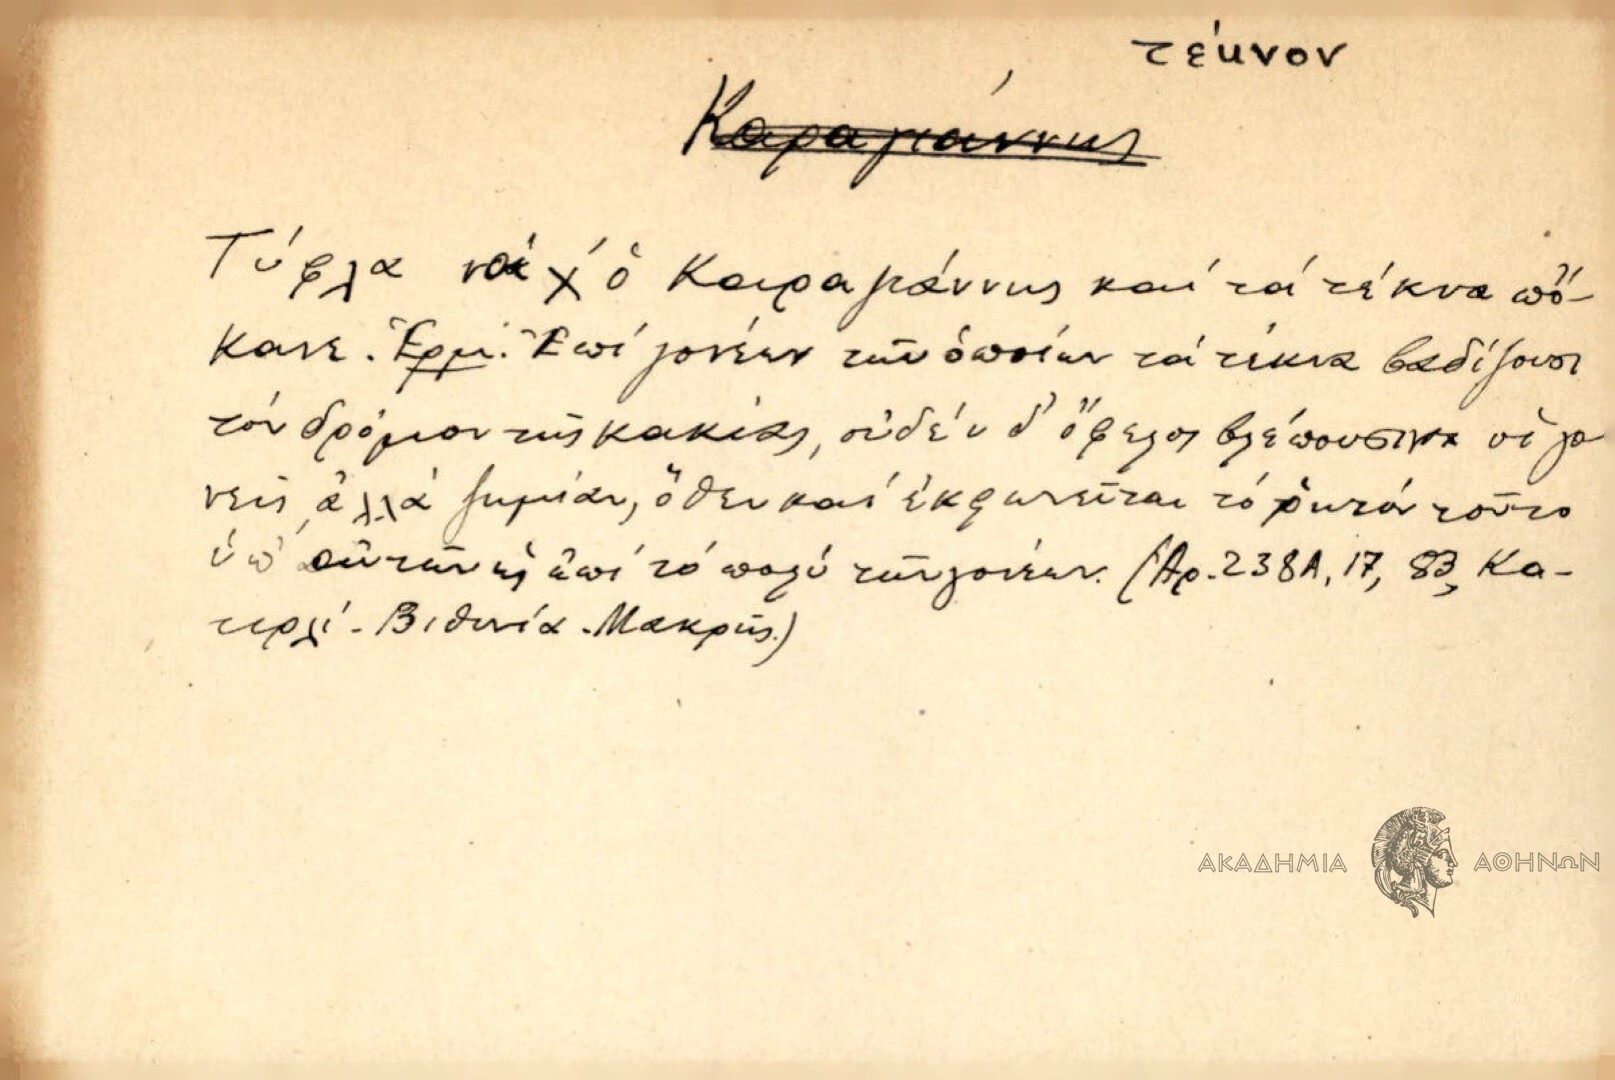 τέκνον
Καραγιάννης
Τύφλα νάχ̓ ὁ Καραγιάννης καὶ τὰ τέκνα πὄ-
κανε. Ἑρμ. Ἐπί γονέων τῶν ὁποίων τὰ τέκνα βαδίζουσι
τόν δρόμον τῆς κακίας, οὐδέν δ' ὄφελος βλέπουσιν οἱ γο
νεῖς, ἀλλά ζημίαν, ὅθεν καί ἐκφωνεῖται τό ρητόν τοῦτο
ὑπ' αὐτῶν ὡς ἐπί τό πολύ τῶν γονέων. (Ἀρ. 238Α, 17, 83, Κα-
τιρλί - Βιθυνία - Μακρῆς.)
ΑΚΑΔΗΜΙΑ ΑΘΗΝΩΝ